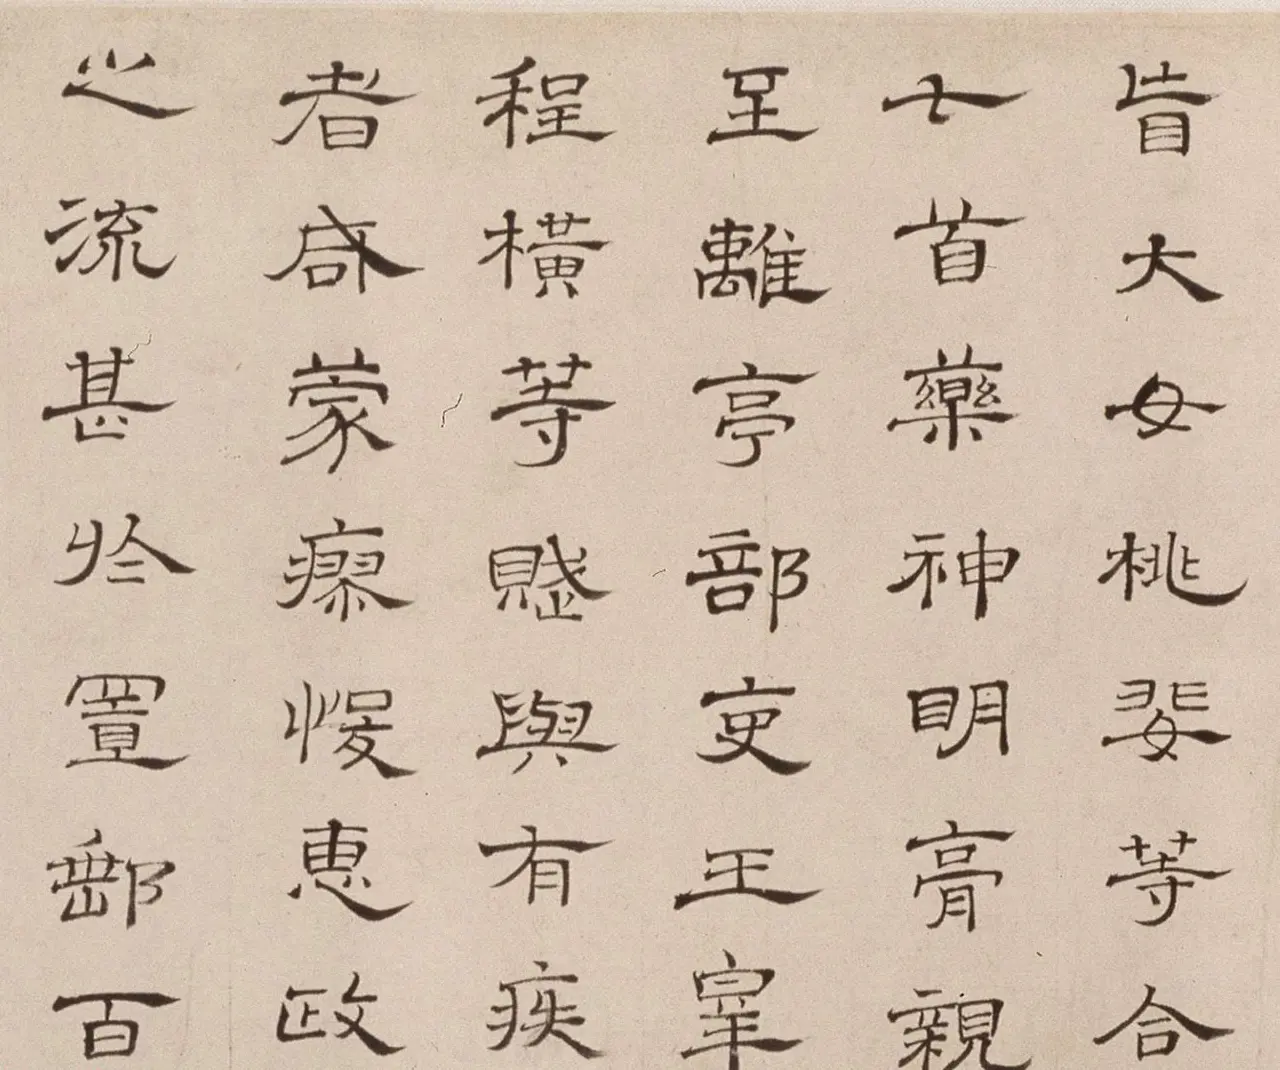 盲大女桃婓等合
七首藥神明膏親
至離亭部吏王皋
程橫等賦與有疾
者咸蒙瘳悛惠政
之流甚於置郵百